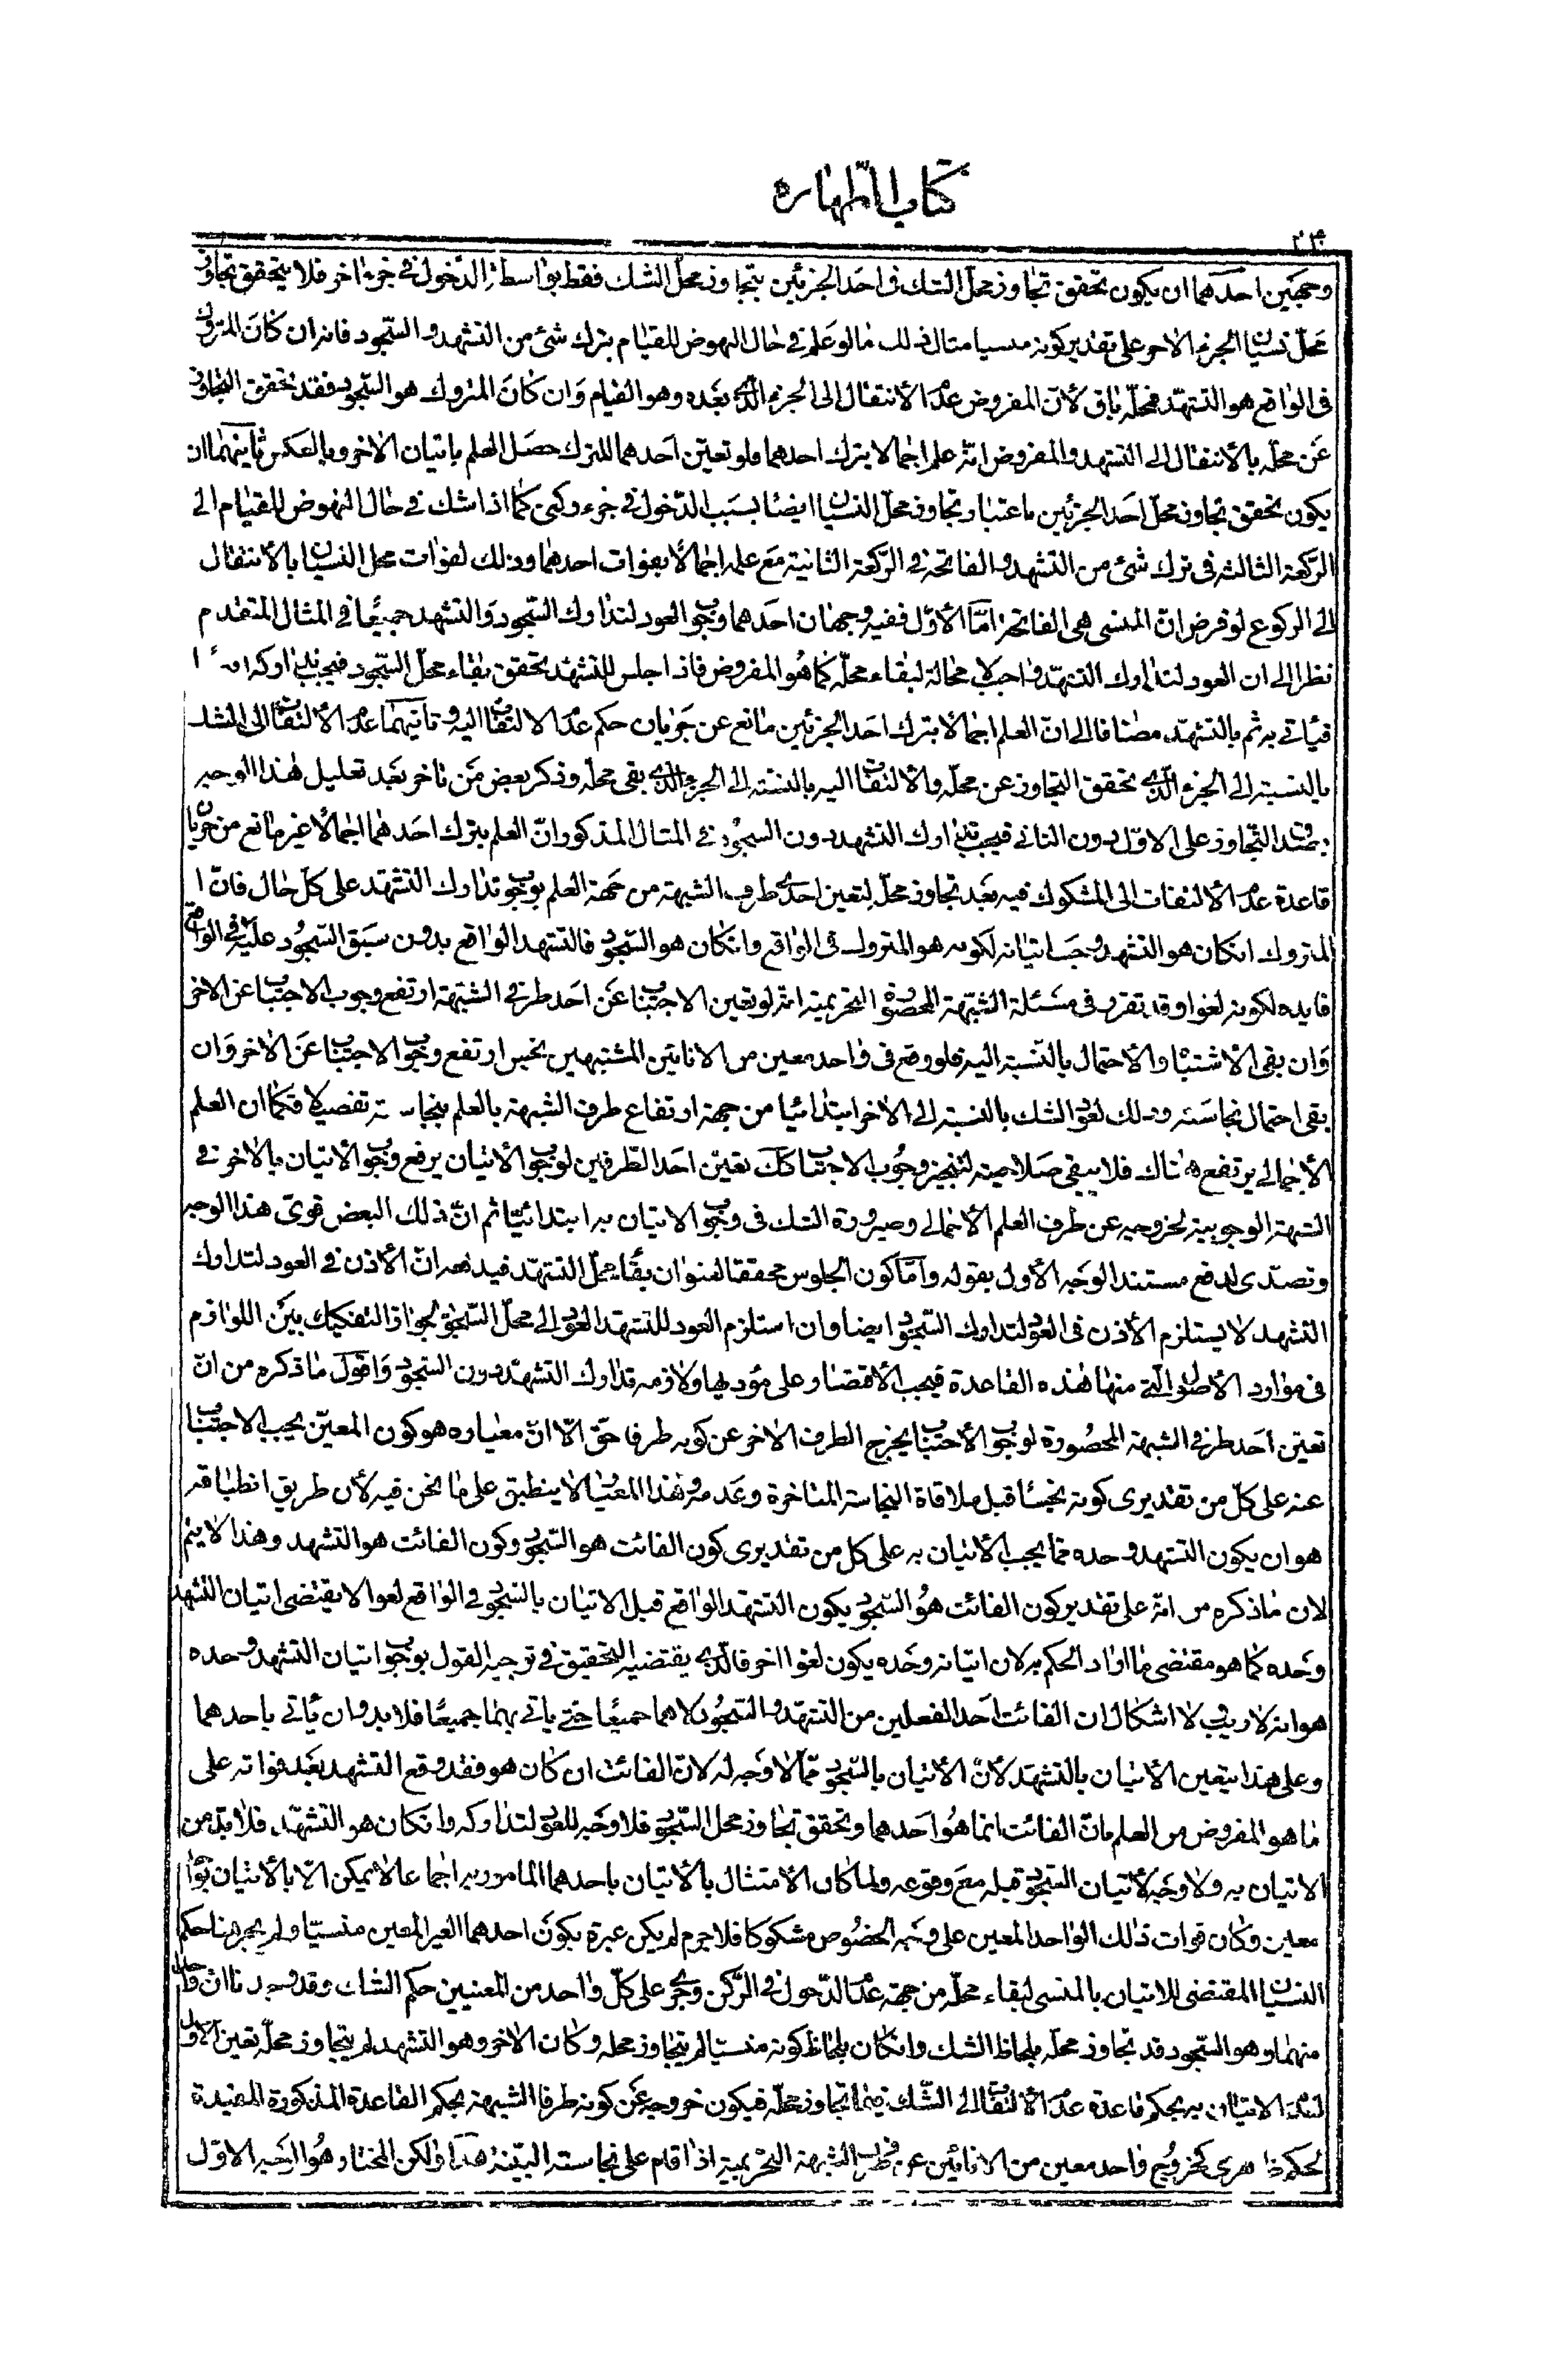 كتاب الطهاره
وجهين احدهما ان يكون تحقق تجاوز محل الشك فى احد الجزئين بتجاوز محل الشك فقط بواسطة الدخول فى جزء اخر فلا يتحقق تجاوز
محل نسيان الجزء الاخر على تقدير كونه منسيا مثال ذلك ما لو علم فى حال النهوض للقيام بترك شئ من التشهد و السجود فانه ان كان المتروك
فى الواقع هو التشهد فمحله باق لأن المفروض عدم الأنتقال الى الجزء الذى بعده وهو القيام وان كان المتروك هو السجود فقد تحقق التجاوز
عن محله بالأنتقال الى التشهد والمفروض انه علم اجمالا بترك احدهما فلو تعين احدهما للترك حصل العلم باتيان الاخر وبالعكس ثانيهما ان
يكون تحقق تجاوز محل احد الجزئين باعتبار تجاوز محل النسيان ايضا بسبب الدخول فى جزء ركنى كما اذا شك فى حال النهوض للقيام الى
الركعة الثالثة فى ترك شئ من التشهد و الفاتحة فى الركعة الثانية مع علمه اجمالا بفوات احدهما وذلك لفوات محل النسيان بالأنتقال
الى الركوع لو فرض ان المنسى هى الفاتحة امّا الأول ففيه وجهان احدهما وجوب العود لتدارك السجود والتشهد جميعا فى المثال المتقدم
نظرا الى ان العود لتدارك التشهد واجب لا محالة لبقاء محله كما هو المفروض فاذا جلس للتشهد تحقق بقاء محل السجود فيجب تداركه
فيأتى به ثم بالتشهد مضافا الى ان العلم اجمالا بترك احد الجزئين مانع عن جريان حكم عدم الالتفات اليه وثانيهما عدم الالتفات الى الشك
بالنسبة الى الجزء الذى تحقق التجاوز عن محله والألتفات اليه بالنسبة الى الجزء الذى بقى محله وذكر بعض من تاخر بعد تعليل هذا الوجه
بصدق التجاوز على الاول دون الثانى فيجب تدارك التشهد دون السجود فى المثال المذكور ان العلم بترك احدهما اجمالا غير مانع من جريان
قاعدة عدم الألتفات الى المشكوك فيه بعد تجاوز محله لتعين احدى طرفى الشبهة من جهة العلم بوجوب تدارك التشهد على كل حال فان
المتروك انكان هو التشهد وجب اتيانه لكونه هو المتروك فى الواقع وانكان هو السجود فالتشهد الواقع بدون سبق السجود عليه فى الواقع
فايده لكونه لغوا وقد تقرر فى مسئلة الشبهة المحصورة التحريمية انه لو تعين الاجتناب عن احد طرفى الشبهة ارتفع وجوب الاجتناب عن الاخر
وان بقى الأشتباه والأحتمال بالنسبة اليه فلو وقع فى واحد معين من الانائين المشتبهين نجس ارتفع وجوب الاجتناب عن الأخر وان
بقى احتمال نجاسته وذلك لعود الشك بالنسبة الى الأخر ابتدائيا من جهة ارتفاع طرف الشبهة بالعلم بنجاسته تفصيلا فكما ان العلم
الأجمالى يرتفع هناك فلا يبقى صلاحيته لتنجيز وجوب الاجتناب كك تعين احد الطرفين لوجوب الأتيان يرفع وجوب الأتيان بالأخر فى
الشبهة الوجوبية لخروجه عن طرف العلم الأجمالى وصيرورة الشك فى وجوب الاتيان به ابتدائيا ثم ان ذلك البعض قوى هذا الوجه
وتصدى لدفع مستند الوجه الأول بقوله وامّا كون الجلوس محققا لعنوان بقاء محل التشهد فيدفعه ان الأذن فى العود لتدارك
التشهد لا يستلزم الأذن فى العود لتدارك السجود ايضا وان استلزم العود للتشهد العود الى محل السجود لجواز التفكيك بين اللوازم
فى موارد الأصول التى منها هذه القاعدة فيجب الأقتصار على مؤديها ولازمه تدارك التشهد دون السجود واقول ما ذكره من ان
تعين احد طرفى الشبهة المحصورة لوجوب الأجتناب يخرج الطرف الأخر عن كونه طرفا حق الا ان معياره هو كون المعين يجب الاجتناب
عنه على كل من تقديرى كونه نجسا قبل ملاقاة النجاسة المتاخرة وعدمه وهذا المعيار لا ينطبق على ما نحن فيه لأن طريق انطباقه
هو ان يكون التشهد وحده مما يجب الأتيان به على كل من تقديرى كون الفائت هو السجود وكون الفائت هو التشهد وهذا لا يتم
لان ما ذكره من انه على تقدير كون الفائت هو السجود يكون التشهد الواقع قبل الاتيان بالسجود فى الواقع لغوا لا يقتضى اتيان التشهد
وحده كما هو مقتضى ما اراد الحكم به لان اتيانه وحده يكون لغوا اخر فالذى يقتضيه التحقيق فى توجيه القول بوجوب اتيان التشهد وحده
هو انه لا ريب و لا اشكال ان الفائت احد الفعلين من التشهد و السجود لا هما جميعا حتى ياتى بهما جميعا فلا بد و ان يأتى باحدهما
وعلى هذا يتعين الأتيان بالتشهد لأن الأتيان بالسجود مما لا وجه له لان الفائت ان كان هو فقد وقع التشهد بعد فواته على
ما هو المفروض من العلم بان الفائت انما هو احدهما وتحقق تجاوز محل السجود فلا وجه للعود لتداركه وانكان هو التشهد فلا بد من
الاتيان به ولا وجه لأتيان السجود قبله مع وقوعه ولما كان الأمتثال بالأتيان باحدهما المامور به اجماعا لا يمكن الا بالأتيان بواحد
معين وكان فوات ذلك الواحد المعين على وجه الخصوص مشكوكا فلا جرم لم يكن عبرة بكون احدهما الغير المعين منسيا ولم يجر هنا حكم
النسيان المقتضى للاتيان بالمنسى لبقاء محله من جهة عدم الدخول فى الركن وجرى على كل واحد من المعنيين حكم الشك وقد وجدنا ان واحدا
منهما وهو السجود قد تجاوز محله بلحاظ الشك وانكان بلحاظ كونه منسيا لم يتجاوز محله وكان الأخر وهو التشهد لم يتجاوز محله تعين الاول
لعدم الاتيان به بحكم قاعدة عدم الألتفات الى الشك فيما تجاوز محله فيكون خروجه عن كونه طرفا للشبهة بحكم القاعدة المذكورة المفيدة
لحكم ظاهرى كخروج واحد معين من الانائين عن طرف الشبهة التحريمية اذا قام على نجاسته البينة هذا ولكن المختار هو الوجه الاول